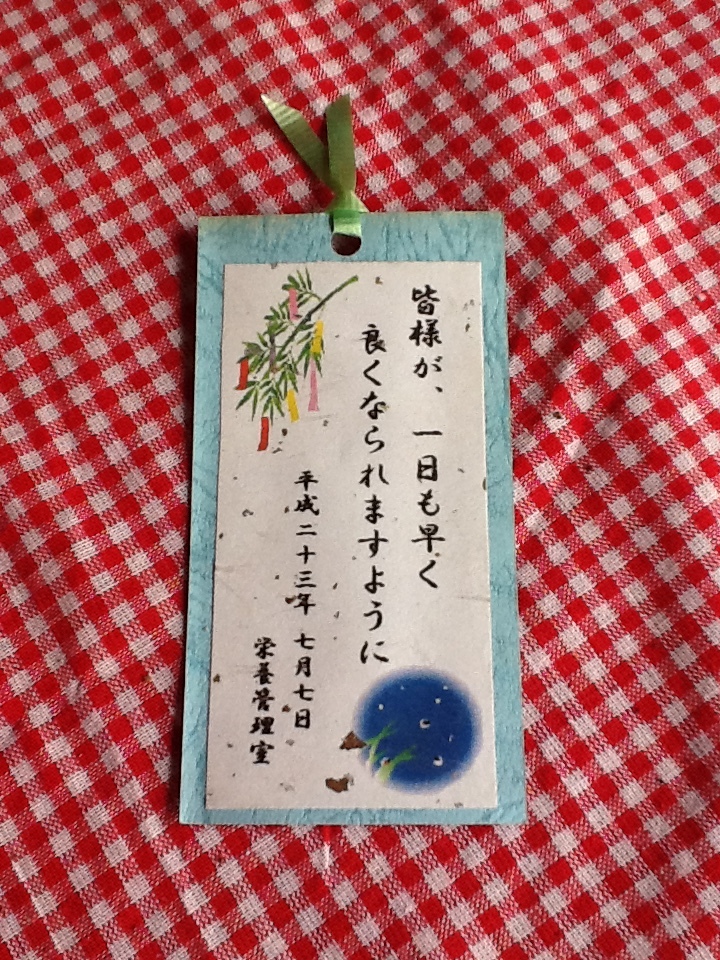 皆様が、一日も早く
良くなられますように
平成二十三年 七月七日
栄養管理室